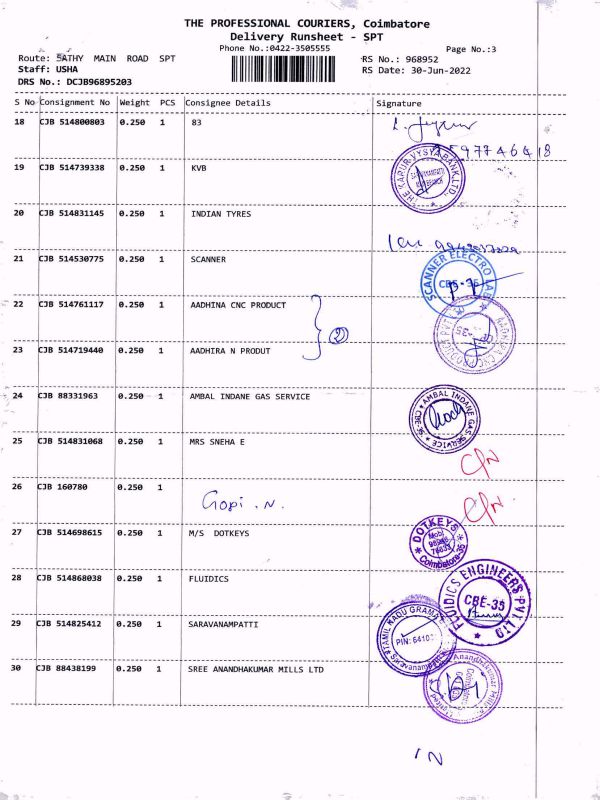 THE PROFESSIONAL COURIERS, Coimbatore
Delivery Runsheet - SPT
Phone No.:0422-3505555
Page No.:3
Route: SATHY MAIN ROAD SPT
RS No.: 968952
Staff: USHA
RS Date: 30-Jun-2022
DRS No.: DCJB96895203
S No Consignment No Weight PCS Consignee Details Signature
18 CJB 514800803 0.250 1 83
19 CJB 514739338 0.250 1 KVB
THE KARUR VYSYA BANK LTD
20 CJB 514831145 0.250 1 INDIAN TYRES
21 CJB 514530775 0.250 1 SCANNER
SCANNER ELECTRO
CBE-35
22 CJB 514761117 0.250 1 AADHINA CNC PRODUCT
2
23 CJB 514719440 0.250 1 AADHIRA N PRODUT
24 CJB 88331963 0.250 1 AMBAL INDANE GAS SERVICE
AMBAL INDANE GAS SERVICE
25 CJB 514831068 0.250 1 MRS SNEHA E
26 CJB 160780 0.250 1
Gopi . N.
27 CJB 514698615 0.250 1 M/S DOTKEYS
DOTKEYS
Mobi
Coimbatore-35
28 CJB 514868038 0.250 1 FLUIDICS
FLUIDICS ENGINEERS PVT LTD
CBE-35
29 CJB 514825412 0.250 1 SARAVANAMPATTI
TAMIL NADU GRAMA
PIN: 64103
30 CJB 88438199 0.250 1 SREE ANANDHAKUMAR MILLS LTD
Anandhakumar Mills